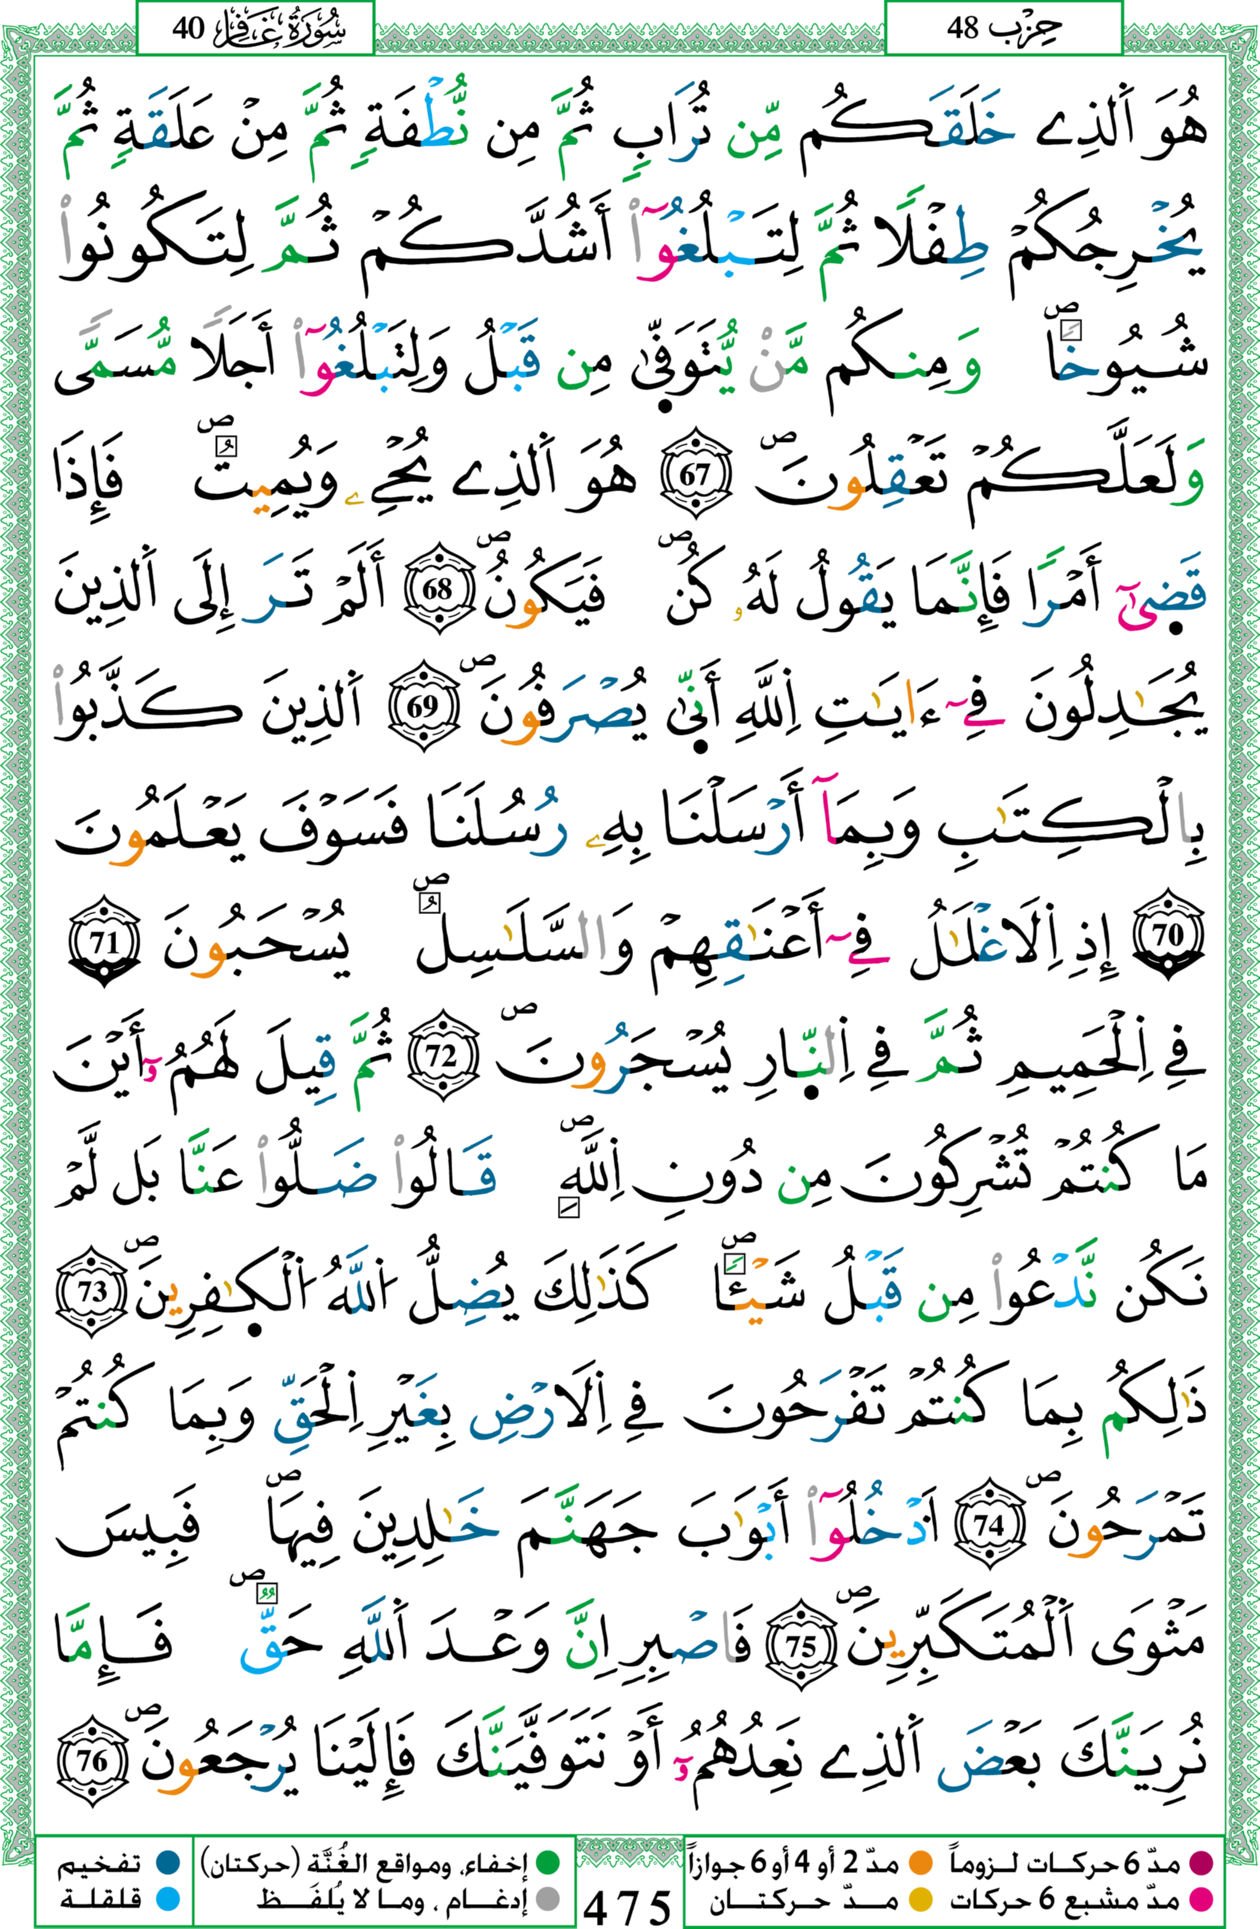 سُورَةُ غَافِر 40
حِزْب 48
هُوَ اَ۬لذِے خَلَقَكُم مِّن تُرَابٖ ثُمَّ مِن نُّطْفَةٖ ثُمَّ مِنْ عَلَقَةٖ ثُمَّ
يُخْرِجُكُمْ طِفْلًا ثُمَّ لِتَبْلُغُوٓاْ أَشُدَّكُمْ ثُمَّ لِتَكُونُواْ
شُيُوخًاۖ وَمِنكُم مَّنْ يُّتَوَفّ۪ىٰ مِن قَبْلُ وَلِتَبْلُغُوٓاْ أَجَلًا مُّسَمًّى
وَلَعَلَّكُمْ تَعْقِلُونَۖ 67 هُوَ اَ۬لذِے يُحْيِۦ وَيُمِيتُۖ فَإِذَا
قَض۪ىٰٓ أَمْرًا فَإِنَّمَا يَقُولُ لَهُۥ كُنۖ فَيَكُونُۖ 68 أَلَمْ تَرَ إِلَى اَ۬لذِينَ
يُجَٰدِلُونَ فِےٓ ءَايَٰتِ اِ۬للَّهِ أَنّ۪ىٰ يُصْرَفُونَۖ 69 اَ۬لذِينَ كَذَّبُواْ
بِالْكِتَٰبِ وَبِمَآ أَرْسَلْنَا بِهِۦ رُسُلَنَا فَسَوْفَ يَعْلَمُونَ
70 إِذِ اِ۬لَاغْلَٰلُ فِےٓ أَعْنَٰقِهِمْ وَالسَّلَٰسِلُۖ يُسْحَبُونَ 71
فِے اِ۬لْحَمِيمِ ثُمَّ فِے اِ۬لنّ۪ارِ يُسْجَرُونَۖ 72 ثُمَّ قِيلَ لَهُمُۥٓ أَيْنَ
مَا كُنتُمْ تُشْرِكُونَ مِن دُونِ اِ۬للَّهِۖ قَالُواْ ضَلُّواْ عَنَّا بَل لَّمْ
نَكُن نَّدْعُواْ مِن قَبْلُ شَيْـٔٗاۖ كَذَٰلِكَ يُضِلُّ اُ۬للَّهُ اُ۬لْكٰ۪فِرِينَۖ 73
ذَٰلِكُم بِمَا كُنتُمْ تَفْرَحُونَ فِے اِ۬لَارْضِ بِغَيْرِ اِ۬لْحَقِّ وَبِمَا كُنتُمْ
تَمْرَحُونَۖ 74 اَ۟دْخُلُوٓاْ أَبْوَٰبَ جَهَنَّمَ خَٰلِدِينَ فِيهَاۖ فَبِيسَ
مَثْوَى اَ۬لْمُتَكَبِّرِينَۖ 75 فَاصْبِرِ اِنَّ وَعْدَ اَ۬للَّهِ حَقّٞۖ فَإِمَّا
نُرِيَنَّكَ بَعْضَ اَ۬لذِے نَعِدُهُمُۥٓ أَوْ نَتَوَفَّيَنَّكَ فَإِلَيْنَا يُرْجَعُونَۖ 76
مدّ 6 حركات لـزوماً مدّ 2 أو 4 أو 6 جوازاً
مدّ مشبع 6 حركات مــدّ حـركتــان
475
إخفاء، ومواقع الغُنَّة (حركتان) تفخيم
إدغــام ، ومـا لا يُلفَــظ قلقلة